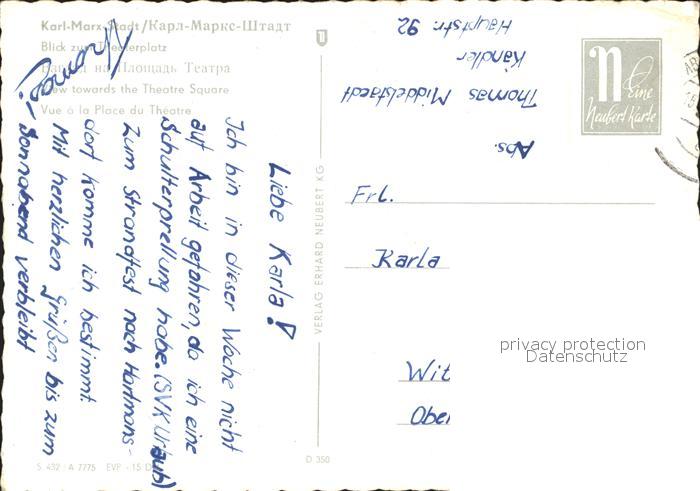 Karl-Marx-Stadt/Карл-Маркс-Штадт
Blick zum Theaterplatz
на Площадь Театра
View towards the Theatre Square
Vue à la Place du Théatre
Liebe Karla!
Ich bin in dieser Woche nicht
auf Arbeit gefahren, da ich eine
Schulterprellung habe. (SVK Urlaub)
Zum Strandfest nach Hartmans-
dorf komme ich bestimmt.
Mit herzlichen Grüßen bis zum
Sonnabend verbleibt
VERLAG ERHARD NEUBERT KG
S 432 A 7775 EVP - 15 D
D 350
Abs.
Thomas Middelstaedt
Kändler
Hauptstr. 92
n
Eine
Neubert Karte
Frl.
Karla
Wit
Ober
privacy protection
Datenschutz